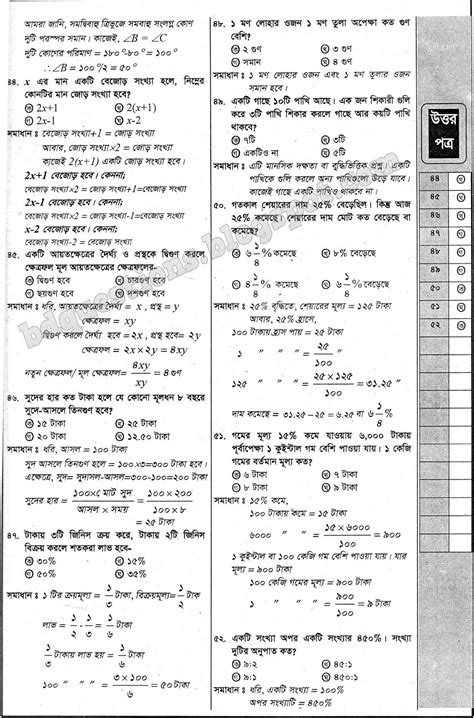 আমরা জানি, সমদ্বিবাহু ত্রিভুজে সমবাহু সংলগ্ন কোণ
দুটি পরস্পর সমান। কাজেই, ∠B = ∠C
দুটি কোণের পরিমাণ = ১৮০°-৮০° = ১০০°
∴ ∠B = ১০০°/২ = ৫০°
৪৪. x এর মান একটি বেজোড় সংখ্যা হলে, নিম্নের
কোনটির মান জোড় সংখ্যা হবে?
2x+1 2(x+1)
2x-1 x-2
সমাধান : বেজোড় সংখ্যা+1 = জোড় সংখ্যা
আবার, জোড় সংখ্যা×2 = জোড় সংখ্যা
কাজেই 2(x+1) একটি জোড় সংখ্যা
2x+1 বেজোড় হবে। কেননা;
বেজোড় সংখ্যা×2 = জোড় সংখ্যা+1=বেজোড় সংখ্যা
2x-1 বেজোড় হবে। কেননা;
বেজোড় সংখ্যা×2 = জোড় সংখ্যা-1=বেজোড় সংখ্যা
x-2 বেজোড় হবে। কেননা;
বেজোড় সংখ্যা-2 = বেজোড় সংখ্যা
৪৫. একটি আয়তক্ষেত্রের দৈর্ঘ্য ও প্রস্থকে দ্বিগুণ করলে
ক্ষেত্রফল মূল আয়তক্ষেত্রের ক্ষেত্রফলের-
দ্বিগুণ হবে চারগুণ হবে
ছয়গুণ হবে দশগুণ হবে
সমাধান : ধরি, আয়তক্ষেত্রের দৈর্ঘ্য = x, প্রস্থ = y
ক্ষেত্রফল = xy
দ্বিগুণ করলে দৈর্ঘ্য হবে = 2x, প্রস্থ হবে= 2y
ক্ষেত্রফল = 2x×2y = 4xy
নতুন ক্ষেত্রফল/ মূল ক্ষেত্রফল = 4xy/xy = 4 গুণ
৪৬. সুদের হার কত টাকা হলে যে কোনো মূলধন ৮ বছরে
সুদে-আসলে তিনগুণ হবে?
১৫ টাকা ২৫ টাকা
২০ টাকা ১২.৫০ টাকা
সমাধান : ধরি, আসল = ১০০ টাকা
সুদ আসলে তিনগুণ হলে = ১০০×৩=৩০০ টাকা হবে।
এক্ষেত্রে, সুদ= সুদাসল-আসল=৩০০-১০০=২০০ টাকা
সুদের হার = ১০০×মোট সুদ/আসল × সময় = ১০০×২০০/১০০×৮
= ২৫ টাকা
৪৭. টাকায় ৩টি জিনিস ক্রয় করে, টাকায় ২টি জিনিস
বিক্রয় করলে শতকরা লাভ হবে-
৩০% ১৫%
৫০% ৩৫%
সমাধান : ১ টির ক্রয়মূল্য = ১/৩ টাকা, বিক্রয়মূল্য= ১/২ টাকা
লাভ = ১/২ - ১/৩ = ১/৬ টাকা
১/৩ টাকায় লাভ হয় = ১/৬ টাকা
১০০ " " " = ৩×১০০/৬ = ৫০ টাকা
৪৮. ১ মণ লোহার ওজন ১ মণ তুলা অপেক্ষা কত গুণ
বেশি?
২ গুণ ৩ গুণ
সমান ৪ গুণ
সমাধান : ১ মণ লোহার ওজন এবং ১ মণ তুলার ওজন
সমান হবে।
৪৯. একটি গাছে ১০টি পাখি আছে। এক জন শিকারী গুলি
করে ৩টি পাখি শিকার করলে গাছে আর কয়টি পাখি
থাকবে?
৭টি ৩টি
একটিও না ৫টি
সমাধান : এটি মানসিক দক্ষতা বা বুদ্ধিভিত্তিক প্রশ্ন। একটি
পাখিকে গুলি করলে অন্য পাখিগুলো উড়ে যাবে।
কাজেই গাছে একটি পাখিও থাকবে না।
৫০. গতকাল শেয়ারের দাম ২৫% বেড়েছিল। কিন্তু আজ
২৫% কমেছে। শেয়ারের দাম মোট কত বেড়েছে বা
কমেছে?
৬ ১/৪ % কমেছে ৮% বেড়েছে
৪ ১/৪ % কমেছে ৬% কমেছে
সমাধান : ২৫% বৃদ্ধিতে, শেয়ারের মূল্য = ১২৫ টাকা
আবার, ২৫% হ্রাসে,
১০০ টাকায় হ্রাস পায় = ২৫ টাকা
১ " " " = ২৫/১০০
১২৫ " " " = ২৫×১২৫/১০০ = ৩১.২৫"
দাম কমেছে = ৩১.২৫ - ২৫ = ৬.২৫ বা ৬ ১/৪ %
৫১. গমের মূল্য ১৫% কমে যাওয়ায় ৬,০০০ টাকায়
পূর্বাপেক্ষা ১ কুইন্টাল গম বেশি পাওয়া যায়। ১ কেজি
গমের বর্তমান মূল্য কত?
৬ টাকা ৭ টাকা
৮ টাকা ৯ টাকা
সমাধান : ১৫% কমে,
১০০ টাকায় কমে = ১৫ টাকা
৬০০০ " " = ১৫×৬০০০/১০০
= ৯০০ টাকা
১ কুইন্টাল বা ১০০ কেজি গম বেশি পাওয়া যায়। যার
মূল্য = ৯০০ টাকা
১০০ কেজি গমের মূল্য = ৯০০ টাকা
১ " " " = ৯০০/১০০
= ৯ টাকা
৫২. একটি সংখ্যা অপর একটি সংখ্যার ৪৫০%। সংখ্যা
দুটির অনুপাত কত?
৯:২ ৪৫:১
৯:১ ৪৫:২
সমাধান : ধরি, একটি সংখ্যা = ১০০
অপর সংখ্যাটি = ৪৫০
উত্তর
পত্র
৪৪
৪৫
৪৬
৪৭
৪৮
৪৯
৫০
৫১
৫২